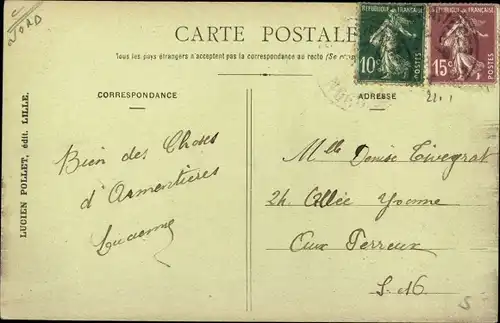 NORD
CARTE POSTALE
Tous les pays étrangers n'acceptent pas la correspondance au recto (Se
CORRESPONDANCE
ADRESSE
REPUBLIQUE FRANÇAISE
10c
POSTES
REPUBLIQUE FRANÇAISE
15c
POSTES
LUCIEN POLLET, édit. LILLE.
Bien des Choses
d'Armentières
Lucienne
Mlle Denise
24. Allée Yvonne
Aux Perreux
S.